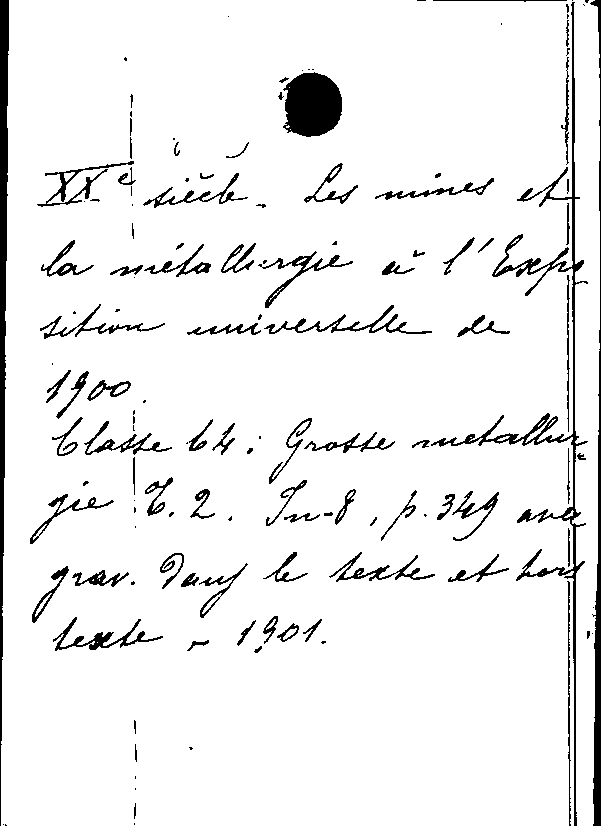 XXe siècle. Les mines et
la métallurgie à l'Expo
sition universelle de
1900.
Classe 64: Grosse metallur-
gie T. 2. In-8, p. 349 avec
grav. Dans le texte et hors
texte - 1901.